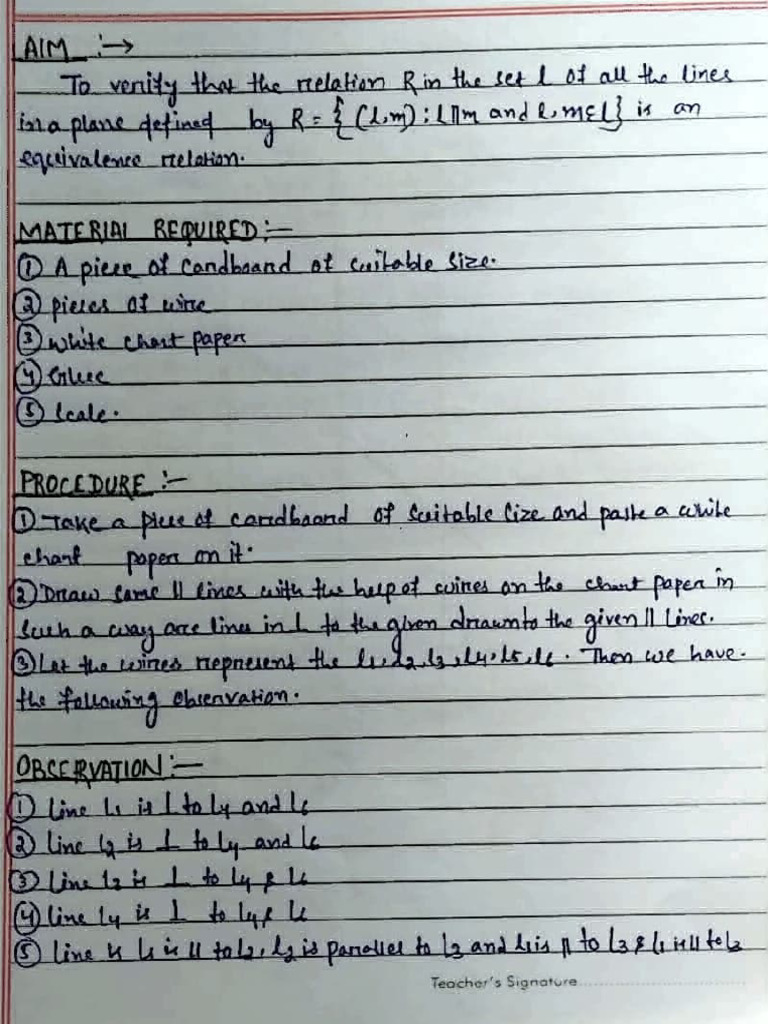 AIM :→
To verify that the relation R in the set L of all the lines
in a plane defined by R = { (l,m) : l || m and l, m ε L} is an
equivalence relation.
MATERIAL REQUIRED :—
① A piece of cardboard of suitable size.
② pieces of wire
③ White chart paper
④ Glue
⑤ Scale.
PROCEDURE :—
① Take a piece of cardboard of suitable size and paste a white
chart paper on it.
② Draw some || lines with the help of wires on the chart paper in
such a way are lines in L to the given drawn to the given || lines.
③ Let the wires represent the l1, l2, l3, l4, l5, l6. Then we have.
the following observation.
OBSERVATION :—
① line L1 is ⊥ to L4 and L6
② line L2 is ⊥ to L4 and L6
③ line L3 is ⊥ to L4 & L6
④ line L4 is ⊥ to L4 & L6
⑤ line L1 is || to L2, L2 is parallel to L3 and L1 is || to L3 & L1 is || to L3
Teacher's Signature